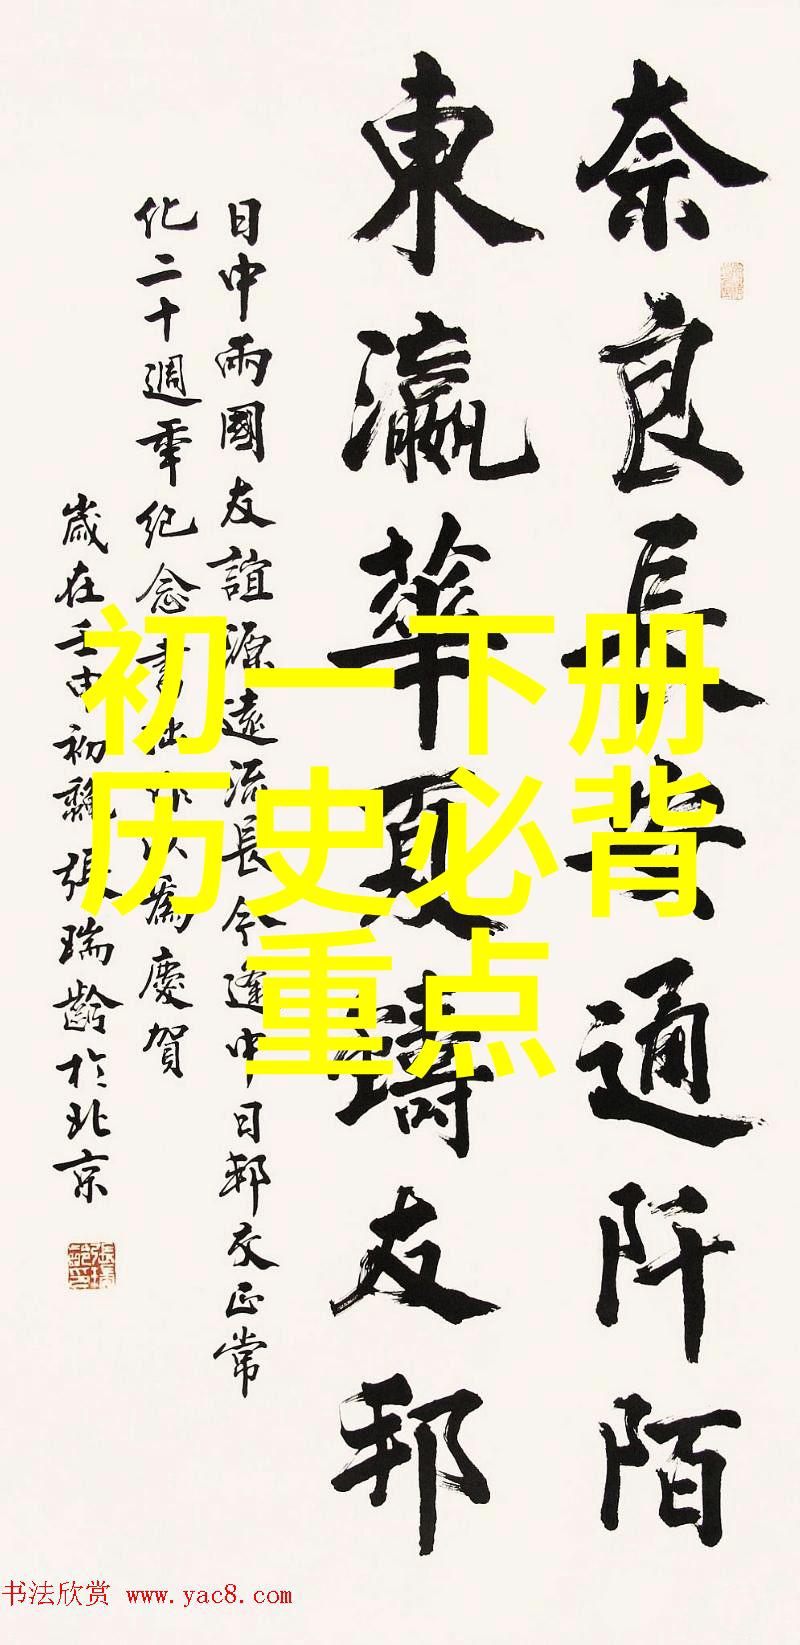 奈良長安通阡陌
東瀛華夏鑄友邦
日中兩國友誼源遠流長今逢中日邦交正常
化二十週年紀念書拙作以為慶賀
歲在壬申初 張瑞齡於北京
初一下册
历史必背
重点
书法欣赏 www.yac8.com